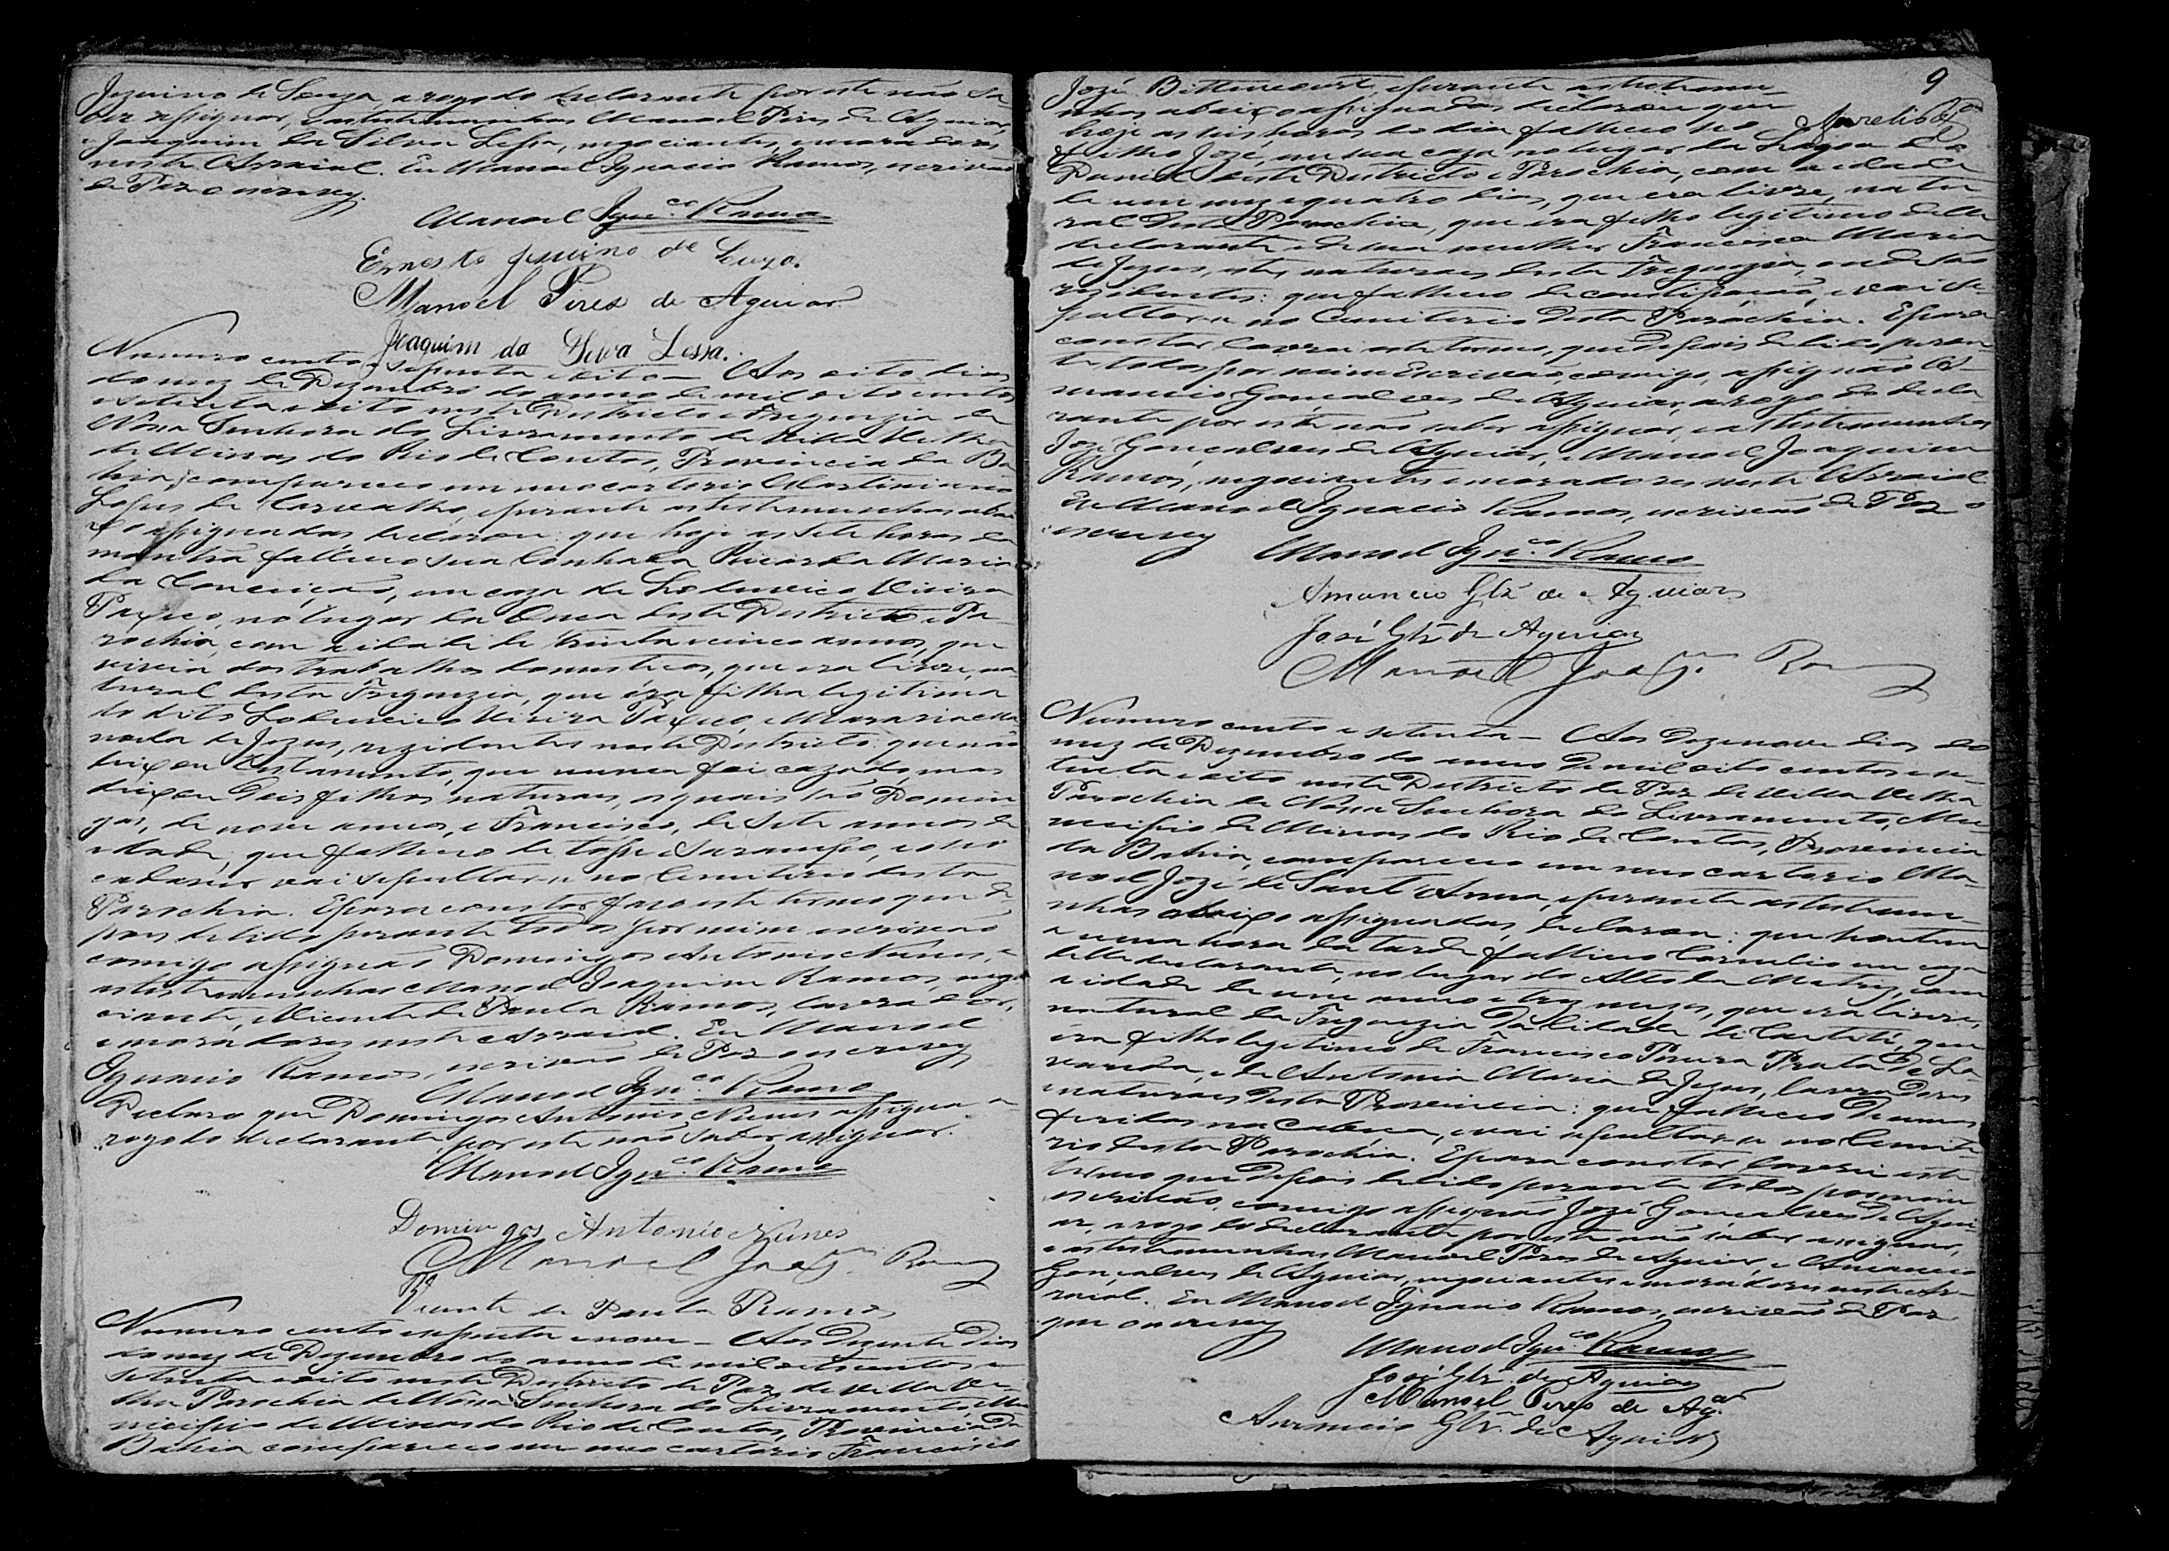 Jezuino de Souza, a rogo do declarante por este não sa-
ber assignar, e as testemunhas Manoel Pires de Aguiar,
e Joaquim da Silva Lessa, negociantes, e moradores
neste Arraial. Eu Manoel Ignacio Ramos, escrivão
de Paz o escrevy.
Manoel Ign.co Ramos
Ernesto Jesuino de Souza.
Manoel Pires de Aguiar
Joaquim da Silva Lessa.
Numero cento e sessenta e oito — Aos oito dias
do mez de Dezembro do anno de mil oito centos
e setenta e oito neste Districto e Freguezia de
Nossa Senhora do Livramento da Villa Velha
de Minas do Rio de Contas, Provincia da Ba-
hia, compareceu em meo cartorio Martiniano
Lopes de Carvalho, e perante as testemunhas abai-
xo assignadas declarou: que hoje as sete horas da
manhã falleceo sua Cunhada Ricarda Maria
da Conceição, em caza de Lodurico Vieira
Paxeco, no lugar da Onca deste Districto e Pa-
rochia, com a idade de trinta e cinco annos, que
vivia dos trabalhos domesticos, que era livre, na-
tural desta Freguezia, que éra filha legitima
do dito Lodurico Vieira Paxeco, e
de Jezus, rezidentes neste Districto: que não
deixou testamento, que nunca foi cazada mas
deixou dois filhos naturaes, os quais são Domin-
gos, de nove annos, e Francisco, de sete annos de
idade; que falleceo de tosse e Sarampo, e seo
cadaver vai sepultar-se no Cemiterio desta
Parochia. E para constar faço este termo que de-
pois de lido perante todos por mim escrivão
comigo assignão Domingos Antonio Nunes, e
as testemunhas Manoel Joaquim Ramos, nego-
ciante, e Vicente de Paula Ramos, lavrador,
e moradores neste Arraial. Eu Manoel
Ignacio Ramos, escrivão de Paz o escrevy
Manoel Ign.co Ramos
Declaro que Domingos Antonio Nunes assigna a
rogo do declarante por este não saber assignar.
Manoel Ign.co Ramos
Domingos Antonio Nunes
Manoel Joaq.m Ramos
Vicente de Paula Ramos
Numero cento e sessenta e nove — Aos Dias
do mez de Dezembro do anno de mil oito centos e
setenta e oito neste Districto de Paz de Villa Ve-
lha Parochia de Nossa Senhora do Livramento, Mu-
nicipio de Minas do Rio de Contas, Provincia da
Bahia compareceo em meo cartorio Francisco
9
José Bittencourt, e perante as testemu-
nhas abaixo assignadas, declarou que
hoje as seis horas do dia falleceo seo
filho José, em sua caza no lugar da Lagoa de
Daniel deste Districto e Parochia, com a idade
de um mez e quatro dias, que era livre, natu-
ral desta Parochia, que era filho legitimo delle
declarante e de sua mulher Francisca Maria
de Jezus, estes naturaes desta Freguezia, onde são
rezidentes: que falleceo de constipação, e vai se-
pultar-se no Cemiterio desta Parochia. E para
constar lavrei este termo, que depois de lido peran-
te todos por mim Escrivão, comigo, assignão A-
mancio Gonçalves de Aguiar, a rogo do decla-
rante por este não saber assignar, e as testemunhas
José Gonçalves de Aguiar, e Manoel Joaquim
Ramos, negociantes e moradores neste Arraial
Eu Manoel Ignacio Ramos, escrivão de Paz o
escrevy
Manoel Ign.co Ramos
Amancio Glz de Aguiar
José Glz de Aguiar
Manoel Joaq.m Ramos
Numero cento e setenta — Aos dezenove dias do
mez de Dezembro do anno de mil oito centos e se-
tenta e oito neste Districto de Paz de Villa Velha
Parochia de Nossa Senhora do Livramento, Mu-
nicipio de Minas do Rio de Contas, Provincia
da Bahia, compareceo em meo cartorio Ma-
noel José de Sant Anna, e perante as testemu-
nhas abaixo assignadas, declarou: que hontem
a uma hora da tarde falleceo Cornelio em caza
delle declarante, no lugar do Alto da Matriz, com
a idade de um anno e trez mezes, que era livre,
natural da Freguezia da Cidade de Caeteté, que
era filho legitimo de Francisco Pereira Prata de La-
, e de Antonia Maria de Jezus, lavradores
e naturaes desta Provincia: que falleceo de umas
feridas na cabeça, e vai sepultar-se no Cemite-
rio desta Parochia. E para constar lavrei este
termo que depois de lido perante todos por mim
escrivão, comigo assignão José Gonçalves de Agui-
ar, a rogo do declarante por este não saber assignar,
e as testemunhas Manoel Pires de Aguiar, e Amancio
Gonçalves de Aguiar, negociantes e moradores neste Ar-
raial. Eu Manoel Ignacio Ramos, escrivão de Paz
que o escrevy
Manoel Ign.co Ramos
José Glz de Aguiar
Manoel Pires de Ag.ar
Amancio Glz de Aguiar